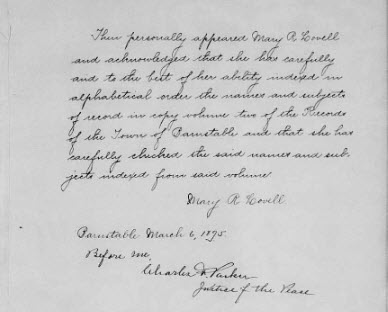 Then personally appeared Mary R. Lovell
and acknowledged that she has carefully
and to the best of her ability indexed in
alphabetical order the names and subjects
of record in copy volume two of the Records
of the Town of Barnstable and that she has
carefully checked the said names and sub-
jects indexed from said volume
Mary R Lovell
Barnstable March 6, 1895.
Before me,
Charles Parker
Justice of the Peace